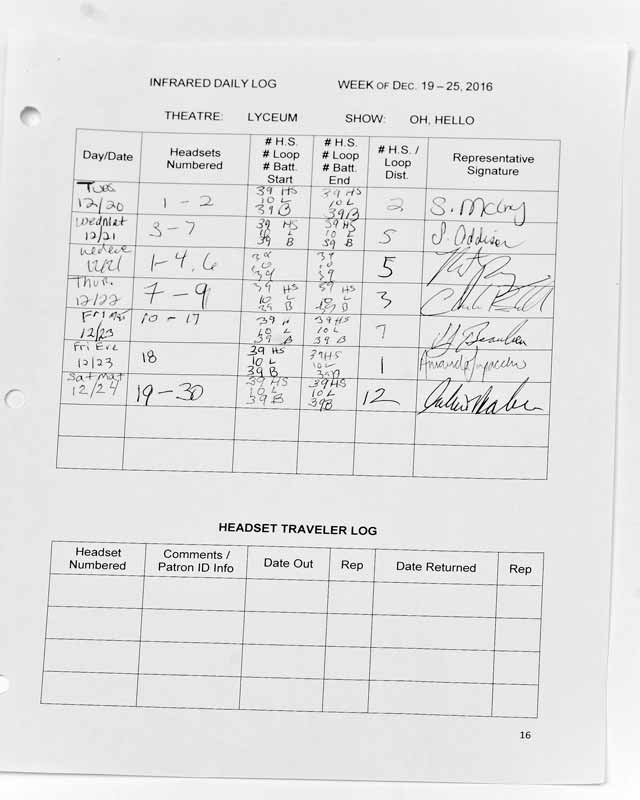 INFRARED DAILY LOG WEEK OF DEC. 19 – 25, 2016
THEATRE: LYCEUM SHOW: OH, HELLO
Day/Date Headsets Numbered # H.S. # Loop # Batt. Start # H.S. # Loop # Batt. End # H.S. / Loop Dist. Representative Signature
Tues 12/20 1 - 2 39 HS 10 L 39 B 39 HS 10 L 39 B 2 S. McCray
Wed Mat 12/21 3 - 7 39 HS 10 L 39 B 39 HS 10 L 39 B 5 J. Addison
12/21 1 - 4, 6 39 10 39 39 10 39 5
Thur. 12/22 7 - 9 39 HS 10 L 39 B 39 HS 10 L 3
Fri 12/23 10 - 17 39 10 L 39 B 39 HS 10 L 39 B 7
Fri Eve 12/23 18 39 HS 10 L 39 B 39 HS 10 L 1 Amanda
Sat Mat 12/24 19 - 30 39 HS 10 L 39 B 39 HS 10 L 39B 12
HEADSET TRAVELER LOG
Headset Numbered Comments / Patron ID Info Date Out Rep Date Returned Rep
16